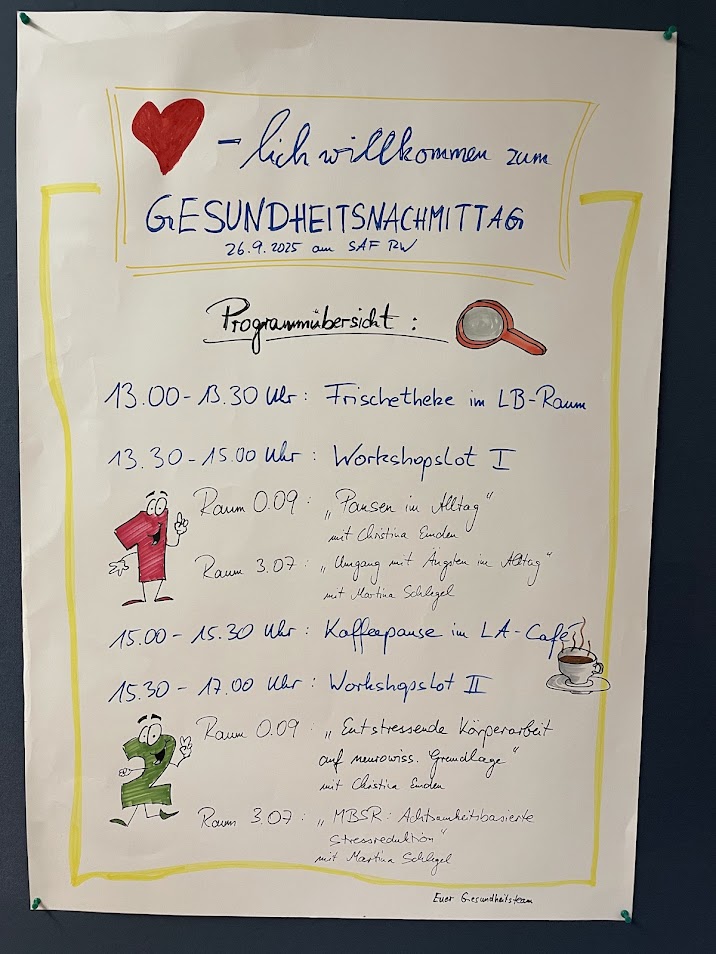 - lich willkommen zum
GESUNDHEITSNACHMITTAG
26.9.2025 am SAF RW
Programmübersicht:
13.00 - 13.30 Uhr: Frischetheke im LB-Raum
13.30 - 15.00 Uhr: Workshopslot I
Raum 0.09: „Pausen im Alltag"
mit Christina Emden
Raum 3.07: „Umgang mit Ängsten im Alltag"
mit Martina Schlegel
15.00 - 15.30 Uhr: Kaffeepause im LA-Café
15.30 - 17.00 Uhr: Workshopslot II
Raum 0.09: „Entstressende Körperarbeit
auf neurowiss. Grundlage"
mit Christina Emden
Raum 3.07: „MBSR: Achtsamkeitsbasierte
Stressreduktion"
mit Martina Schlegel
Euer Gesundheitsteam